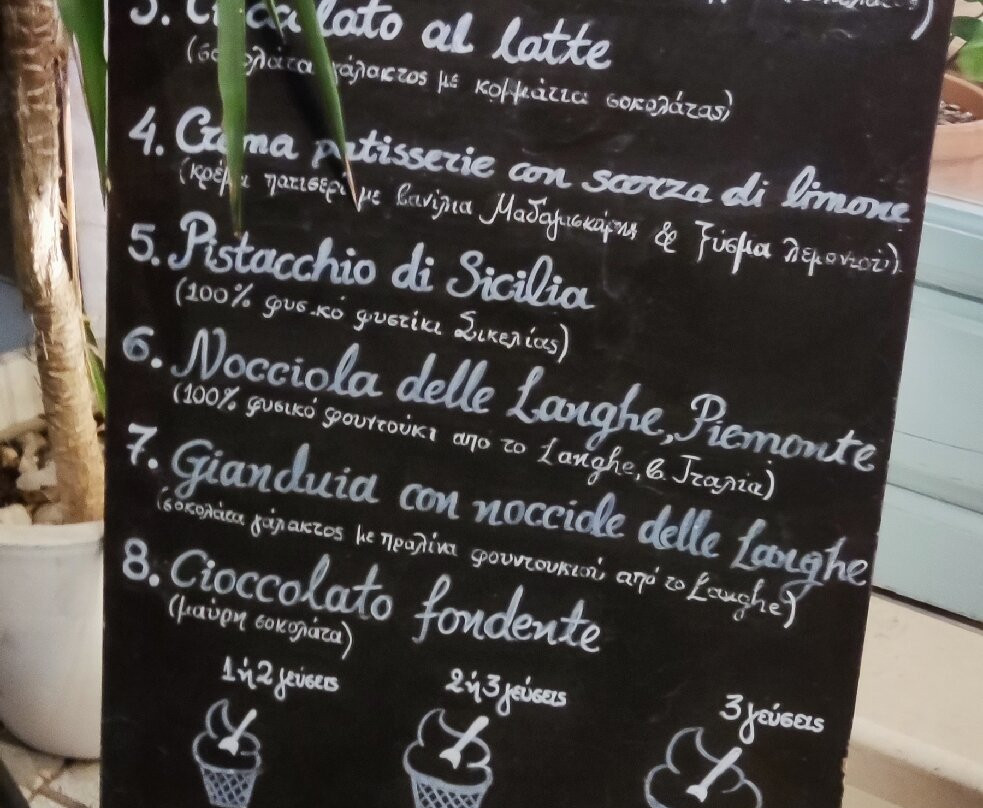 3. Cioccolato al latte
(σοκολάτα γάλακτος με κομμάτια σοκολάτας)
4. Crema patisserie con scorza di limone
(κρέμα πατισερί με βανίλια Μαδαγισκάρης & ξύσμα λεμονιού)
5. Pistacchio di Sicilia
(100% φυσικό φυστίκι Σικελίας)
6. Nocciola delle Langhe, Piemonte
(100% φυσικό φουντούκι απο το Langhe, β. Ιταλία)
7. Gianduia con nocciole delle Langhe
(σοκολάτα γάλακτος με πραλίνα φουντουκιού από το Langhe)
8. Cioccolato fondente
(μαύρη σοκολάτα)
1 ή 2 γεύσεις
2 ή 3 γεύσεις
3 γεύσεις